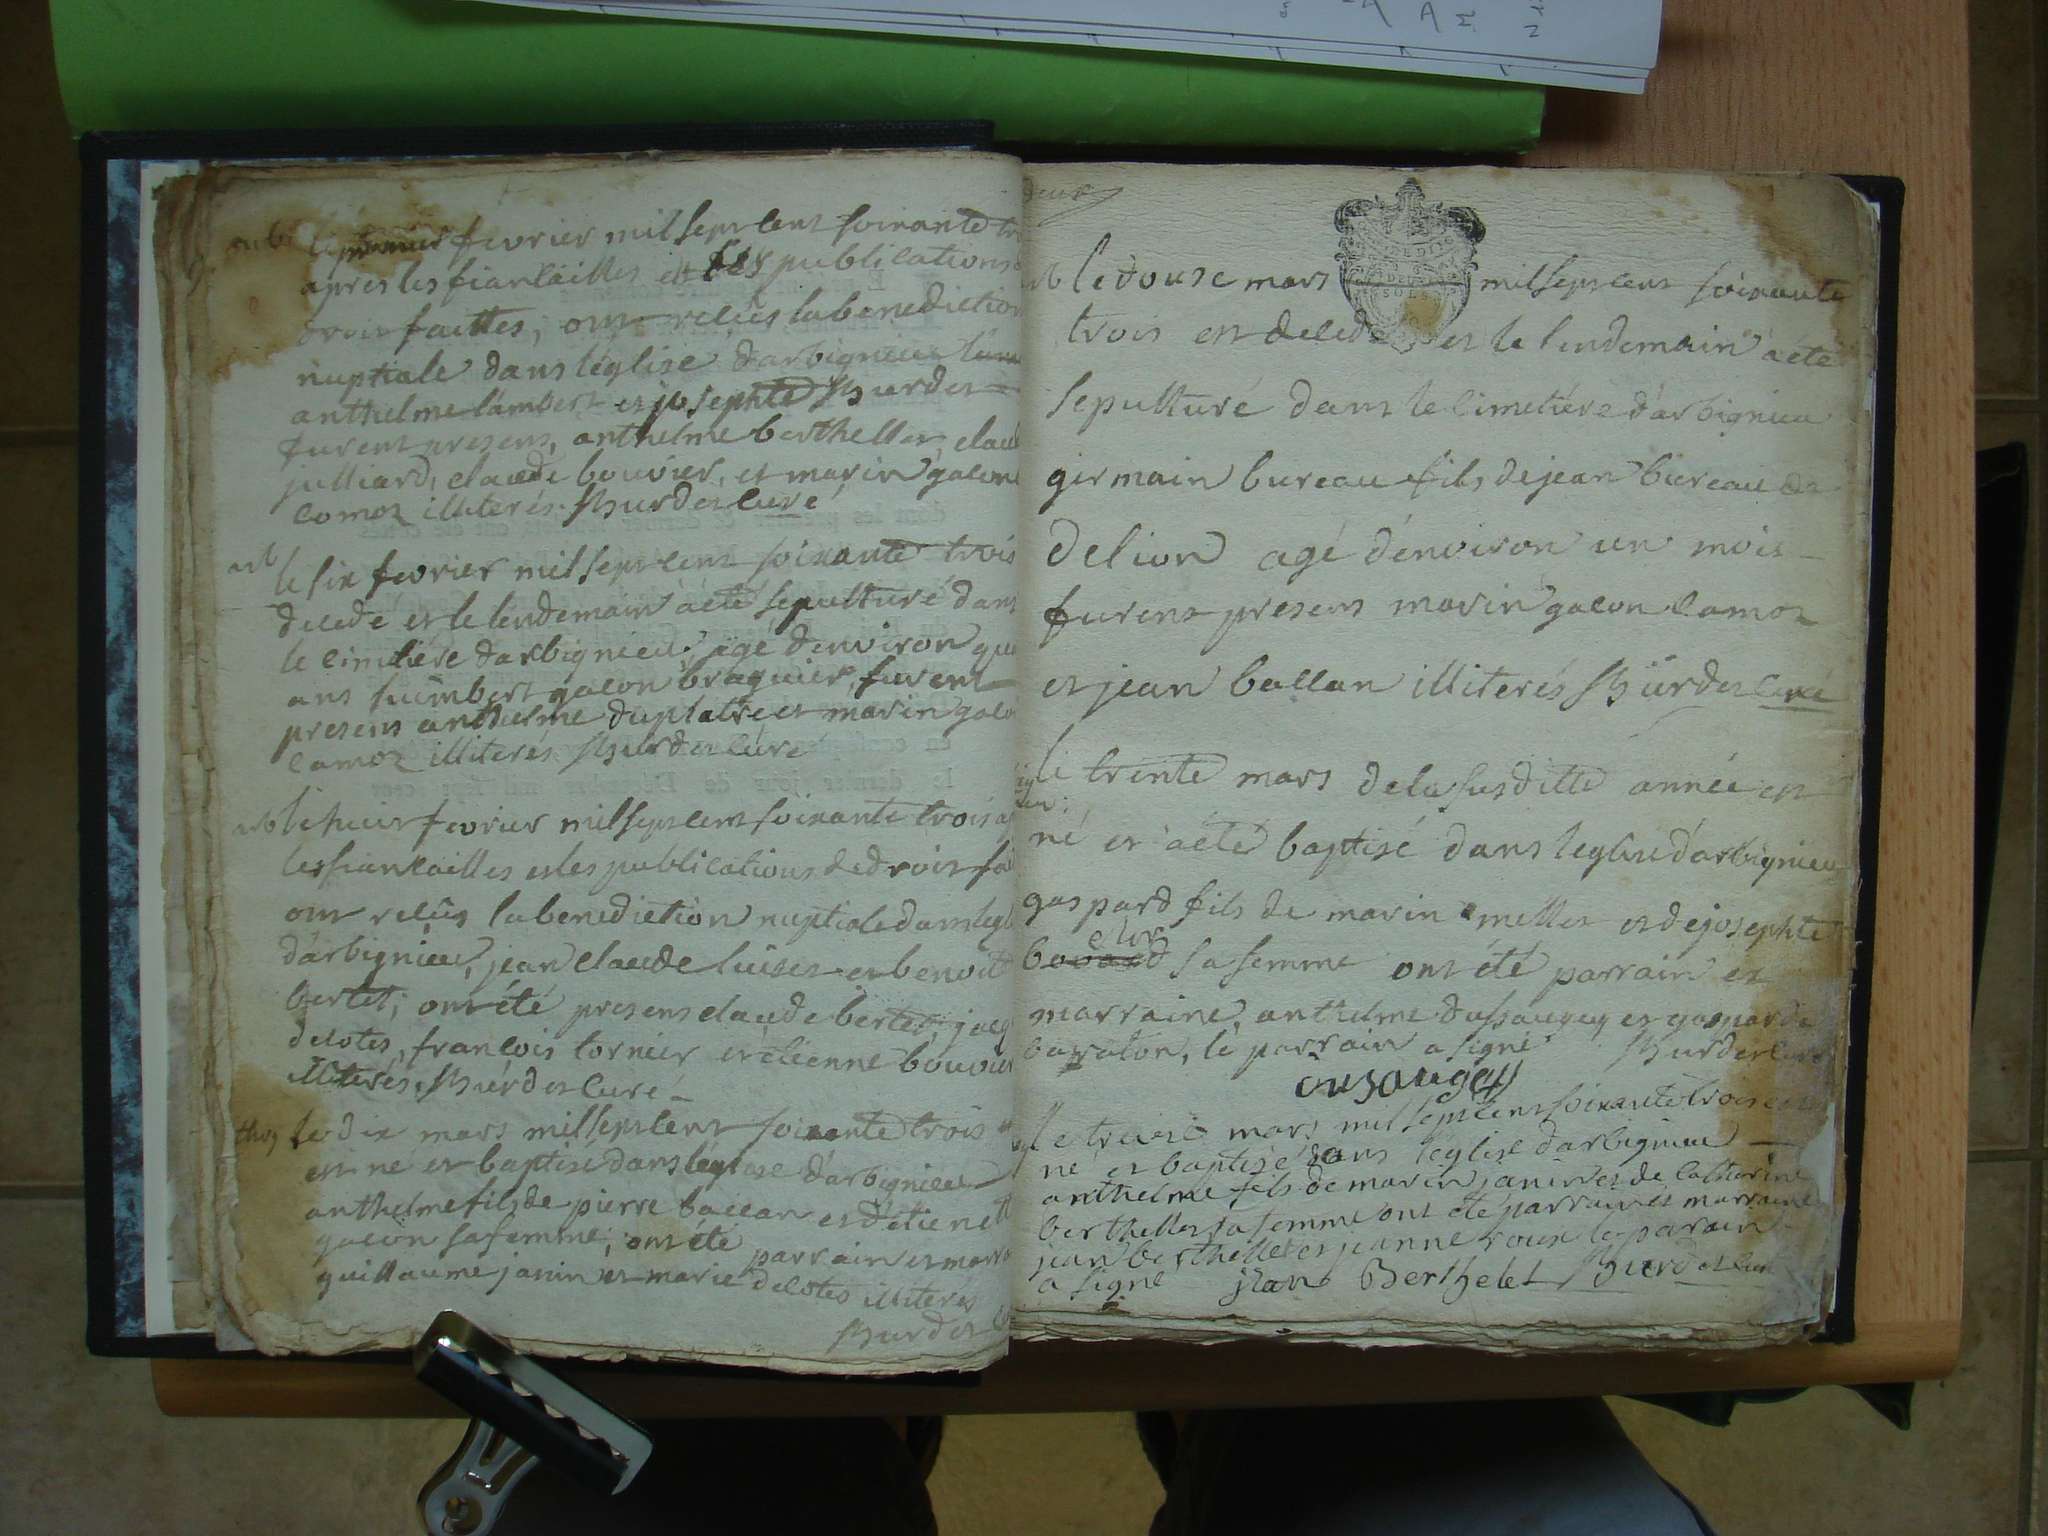 le premier fevrier mil sept cent soixante
apres les fiancailles et les publications
droit faittes, ont reçus la benediction
nuptiale dans léglise darbignieu
anthelme lambert et josephte hurdet
furent presens, anthelme berthellet,
julliard, claude bouvier, et marin galon
camoz illiterés. hurdet curé
arb
le six fevrier mil sept cent soixante trois
decedé et le lendemain àeté sepulturé dans
le cimetiére darbignieu, agé denviron
ans humbert galon braquier, furent
presens anthelme duplatre et marin
camoz illiterés hurdet curé
arb le huit fevrier mil sept cent soixante trois
les fiancailles et les publications de droit
ont reçus la benediction nuptiale dans
d'arbignieu, jean claude luiset et benoite
bertet, ont été presens claude bertet,
delotes, francois tornier et etienne bouvier
illiterés. hurdet curé
le dix mars mil sept cent soixante trois
est né et baptisé dans léglise d'arbignieu
anthelme fils de pierre ballan et
galon sa femme, ont été parrain et
guillaume janin et marie delotes illiteres
hurdet
deux
le douse mars mil sept cent soixante
trois est decedé et le lendemain àeté
sepulturé dans le cimetiére d'arbignieu
germain bureau fils de jean bureau
de lion agé d'environ un mois
furent presens marin galon camoz
et jean ballan illiterés hurdet curé
le trente mars de la susditte année est
né et àeté baptisé dans leglise d'arbignieu
gaspard fils de marin mellet et de josephte
sa femme ont été parrain et
marraine, anthelme dusaugey et gasparde
baraton, le parrain a signé hurdet curé
dusaugey
le treise mars mil sept cent soixante trois
né et baptisé dans léglise darbignieu
anthelme fils de marin janin et de catherine
berthellet sa femme ont été parrain et marraine
jean berthellet et jeanne roux le parain
a signé jean Berthelet hurdet curé